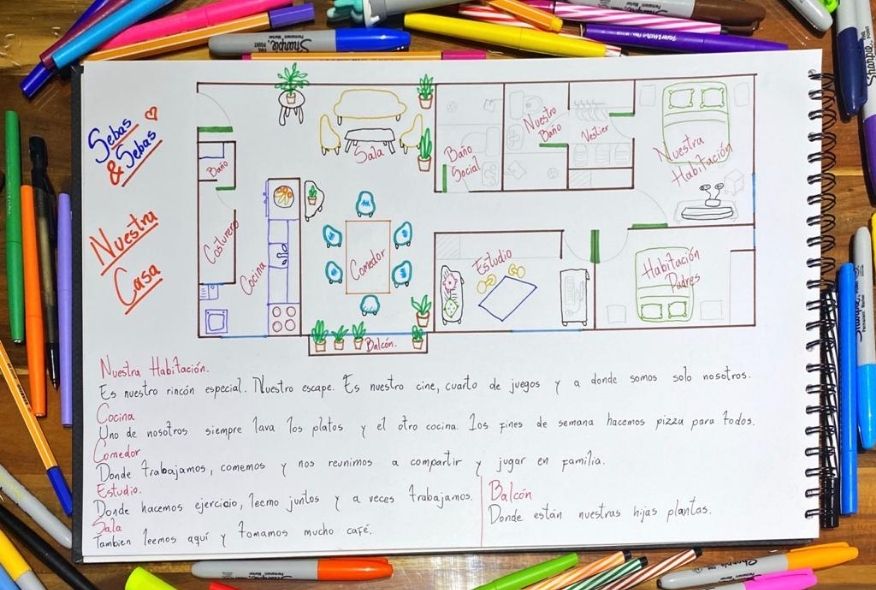 Sharpie
Sebas
& Sebas
Nuestra
Casa
Baño
Costurero
Cocina
Sala
Comedor
Balcón.
Baño
Social
Nuestro
Baño
Vestier
Nuestra
Habitación
Estudio
Habitación
Padres
Nuestra Habitación.
Es nuestro rincón especial. Nuestro escape. Es nuestro cine, cuarto de juegos y a donde somos solo nosotros.
Cocina
Uno de nosotros siempre lava los platos y el otro cocina. Los fines de semana hacemos pizza para todos.
Comedor
Donde trabajamos, comemos y nos reunimos a compartir y jugar en familia.
Estudio.
Donde hacemos ejercicio, leemo juntos y a veces trabajamos.
Sala
Tambien leemos aquí y tomamos mucho café.
Balcón
Donde están nuestras hijas plantas.
Sharpie
Sharpie